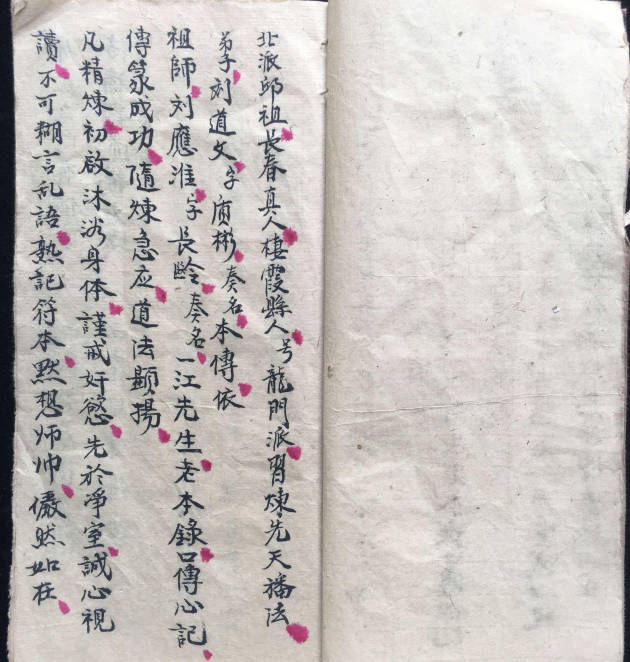 北派邱祖長春真人棲霞縣人号龍門派習煉先天旛法
弟子刘道文字質彬奏名本傳依
祖師刘應淮字長齡奏名一江先生老本錄口傳心記
傳篆成功隨煉急应道法顯揚
凡精煉初啟沐浴身体謹戒奸慾先於凈室誠心視
讀不可糊言乱語熟記符本默想师帅儼然如在